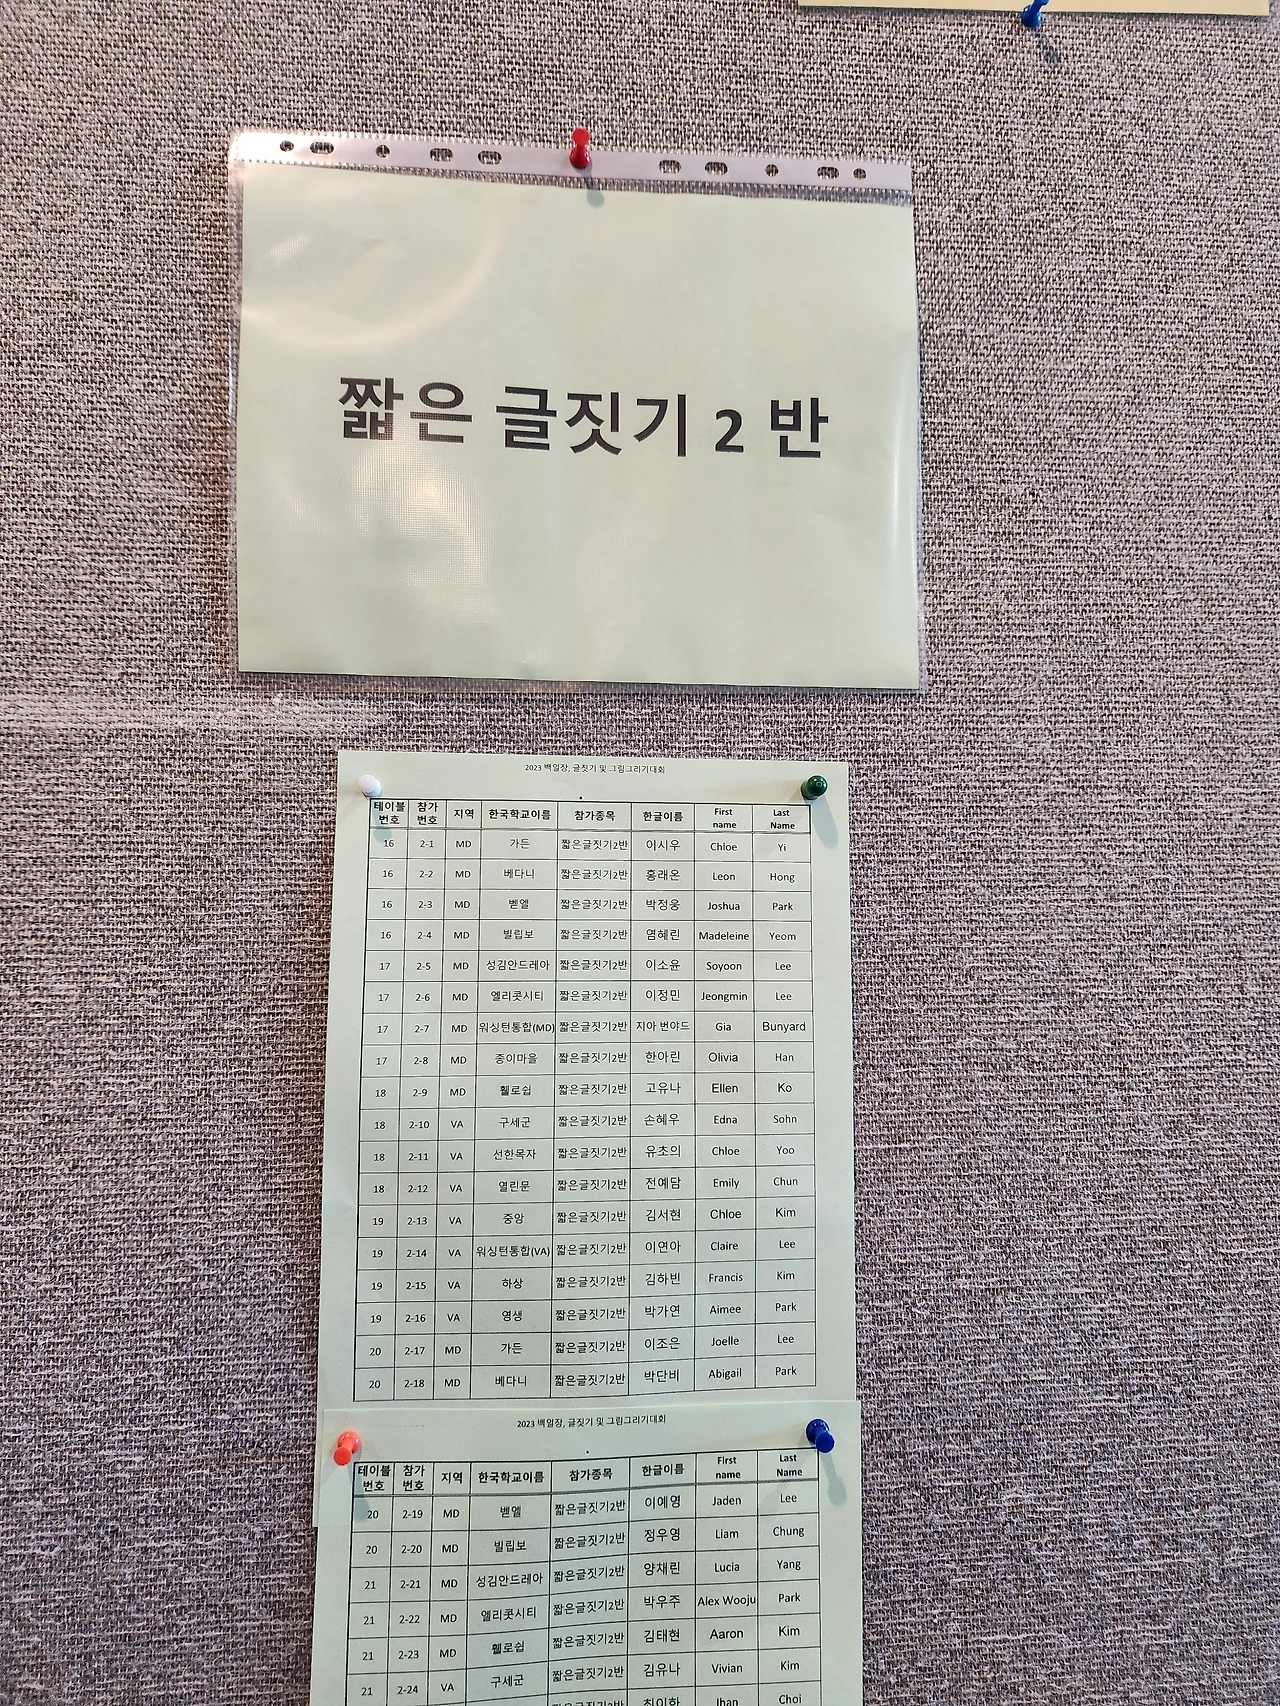 짧은 글짓기 2 반
2023 백일장, 글짓기 및 그림그리기대회
테이블 번호 참가 번호 지역 한국학교이름 참가종목 한글이름 First name Last Name
16 2-1 MD 가든 짧은글짓기2반 이시우 Chloe Yi
16 2-2 MD 베다니 짧은글짓기2반 홍래온 Leon Hong
16 2-3 MD 벧엘 짧은글짓기2반 박정웅 Joshua Park
16 2-4 MD 빌립보 짧은글짓기2반 염혜린 Madeleine Yeom
17 2-5 MD 성김안드레아 짧은글짓기2반 이소윤 Soyoon Lee
17 2-6 MD 엘리콧시티 짧은글짓기2반 이정민 Jeongmin Lee
17 2-7 MD 워싱턴통합(MD) 짧은글짓기2반 지아 번야드 Gia Bunyard
17 2-8 MD 종이마을 짧은글짓기2반 한아린 Olivia Han
18 2-9 MD 휄로쉽 짧은글짓기2반 고유나 Ellen Ko
18 2-10 VA 구세군 짧은글짓기2반 손혜우 Edna Sohn
18 2-11 VA 선한목자 짧은글짓기2반 유초의 Chloe Yoo
18 2-12 VA 열린문 짧은글짓기2반 전예담 Emily Chun
19 2-13 VA 중앙 짧은글짓기2반 김서현 Chloe Kim
19 2-14 VA 워싱턴통합(VA) 짧은글짓기2반 이연아 Claire Lee
19 2-15 VA 하상 짧은글짓기2반 김하빈 Francis Kim
19 2-16 VA 영생 짧은글짓기2반 박가연 Aimee Park
20 2-17 MD 가든 짧은글짓기2반 이조은 Joelle Lee
20 2-18 MD 베다니 짧은글짓기2반 박단비 Abigail Park
2023 백일장, 글짓기 및 그림그리기대회
테이블 번호 참가 번호 지역 한국학교이름 참가종목 한글이름 First name Last Name
20 2-19 MD 벧엘 짧은글짓기2반 이예영 Jaden Lee
20 2-20 MD 빌립보 짧은글짓기2반 정우영 Liam Chung
21 2-21 MD 성김안드레아 짧은글짓기2반 양채린 Lucia Yang
21 2-22 MD 엘리콧시티 짧은글짓기2반 박우주 Alex Wooju Park
21 2-23 MD 휄로쉽 짧은글짓기2반 김태현 Aaron Kim
21 2-24 VA 구세군 짧은글짓기2반 김유나 Vivian Kim
Choi